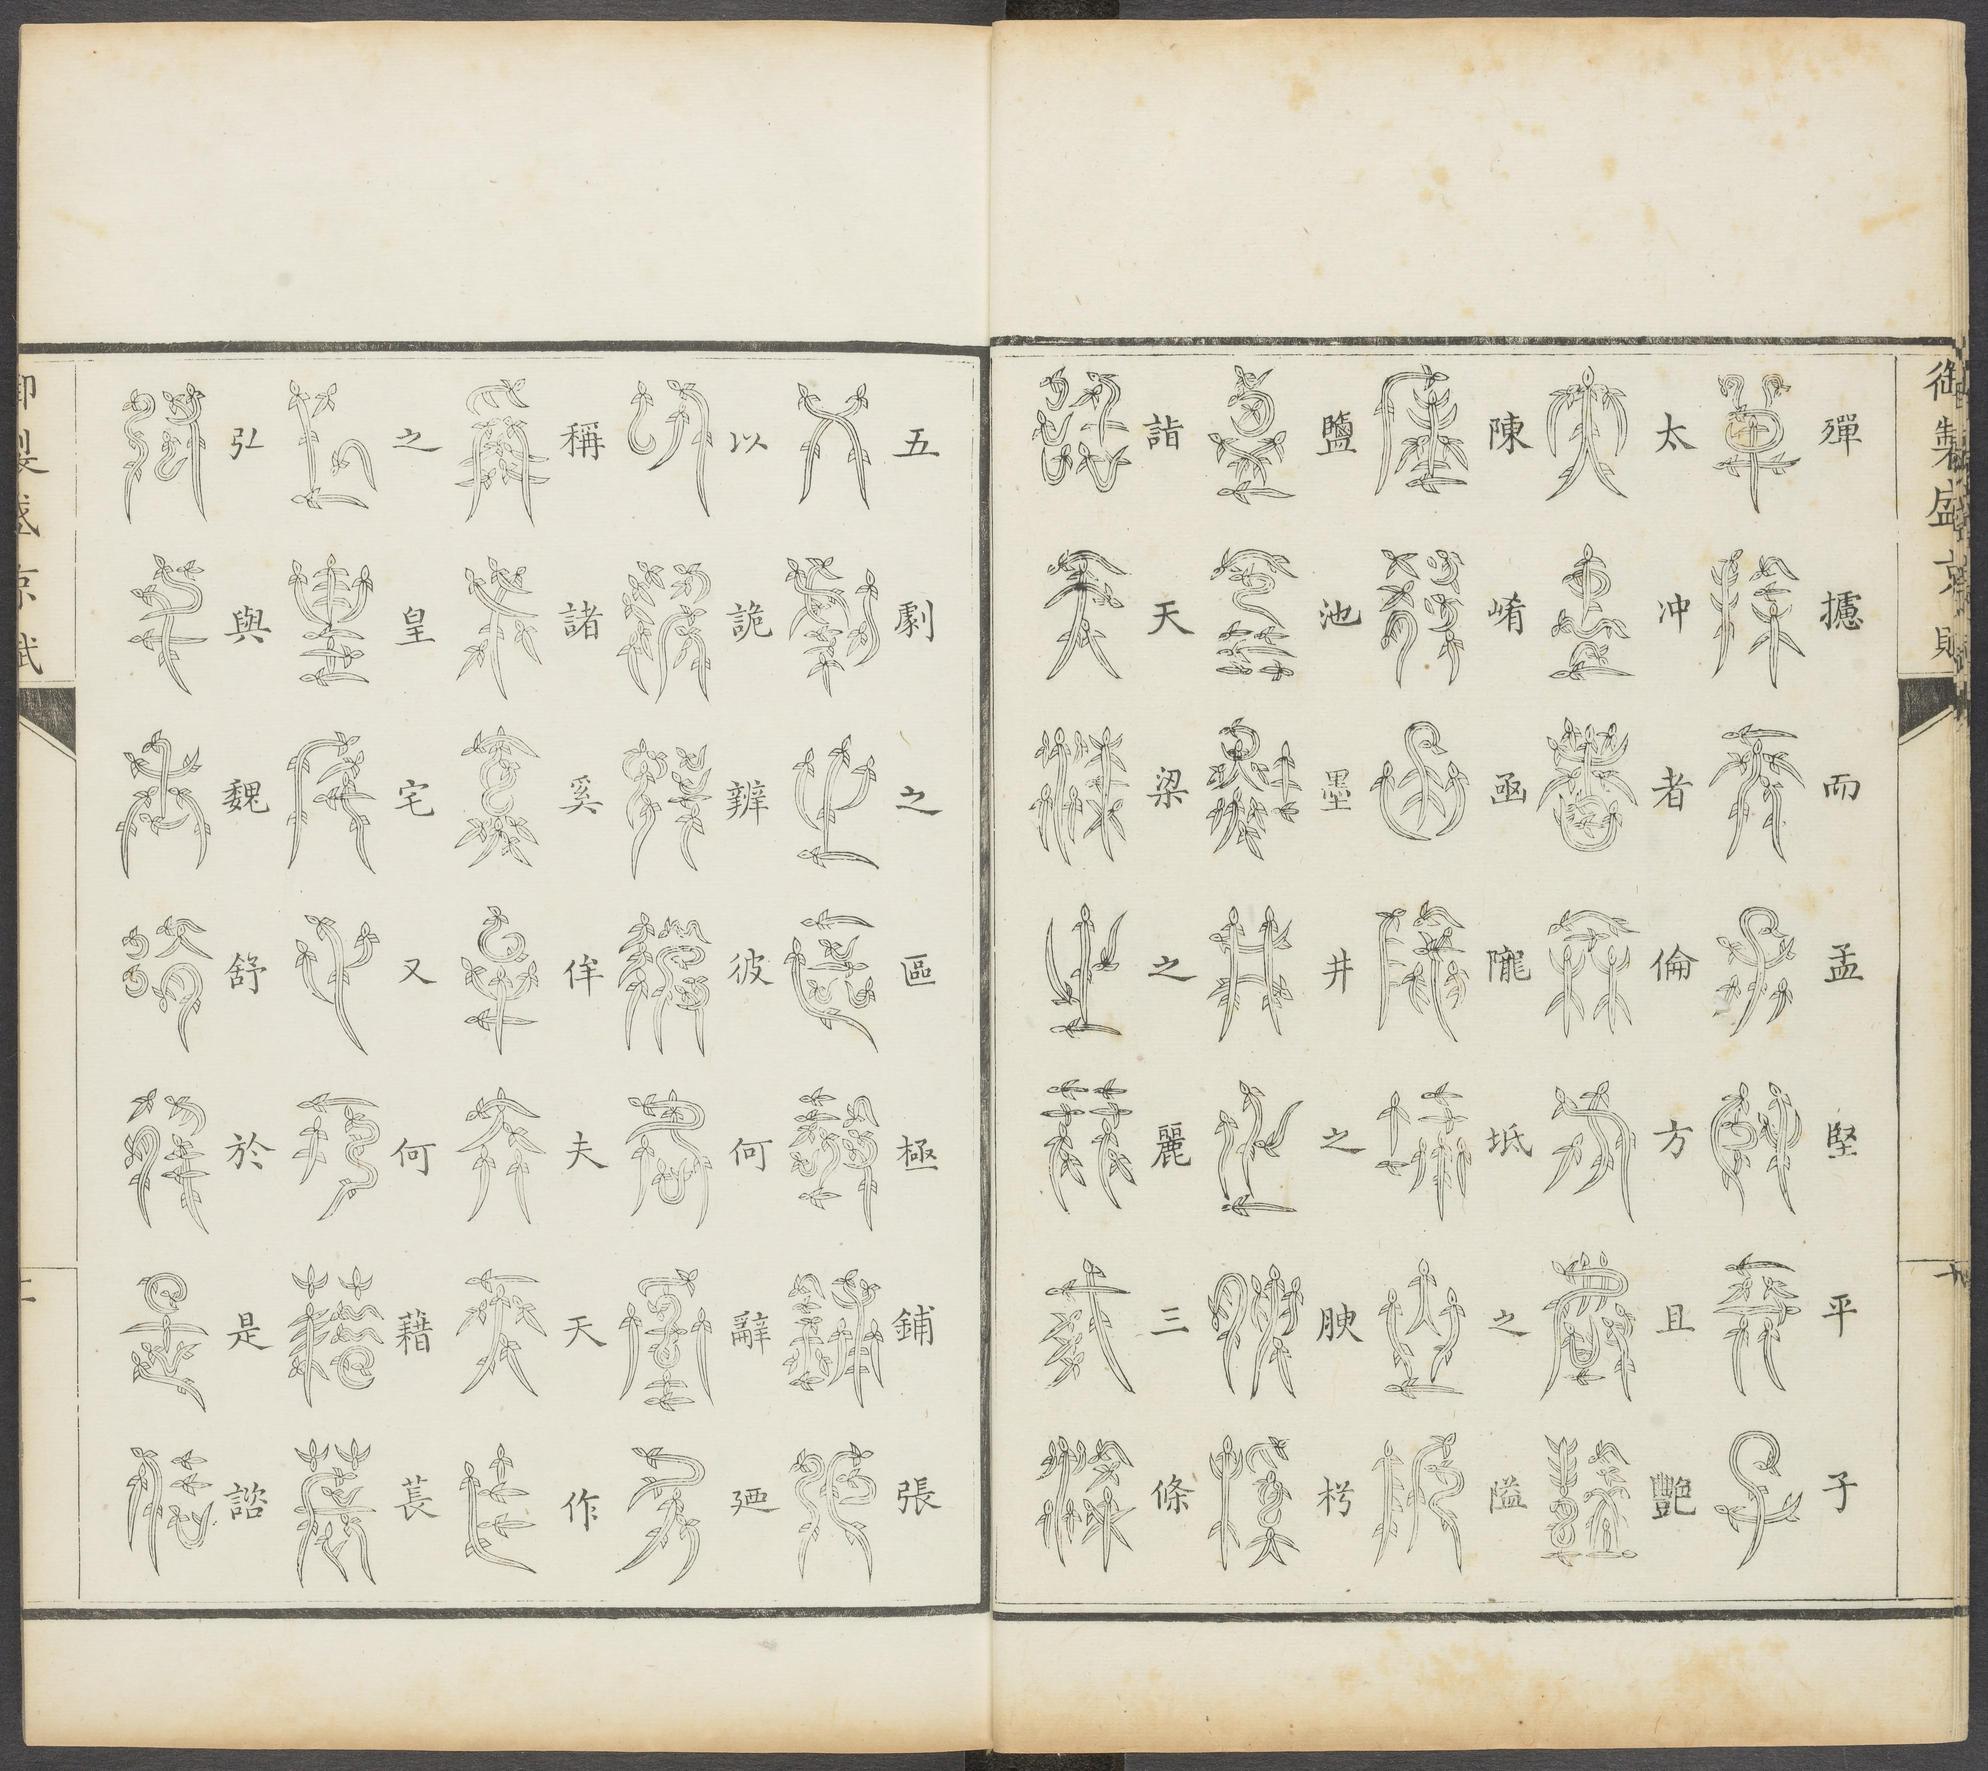 御製盛京賦
殫攄而孟堅平子
太冲者倫方且艷
陳崤函隴坻之隘
鹽池墨井之腴枵
詣天梁之麗三條
五劇之區極鋪張
以詭辨彼何辭廼
稱諸奚侔夫天作
之皇宅又何藉萇
弘與魏舒於是諮
御製盛京賦